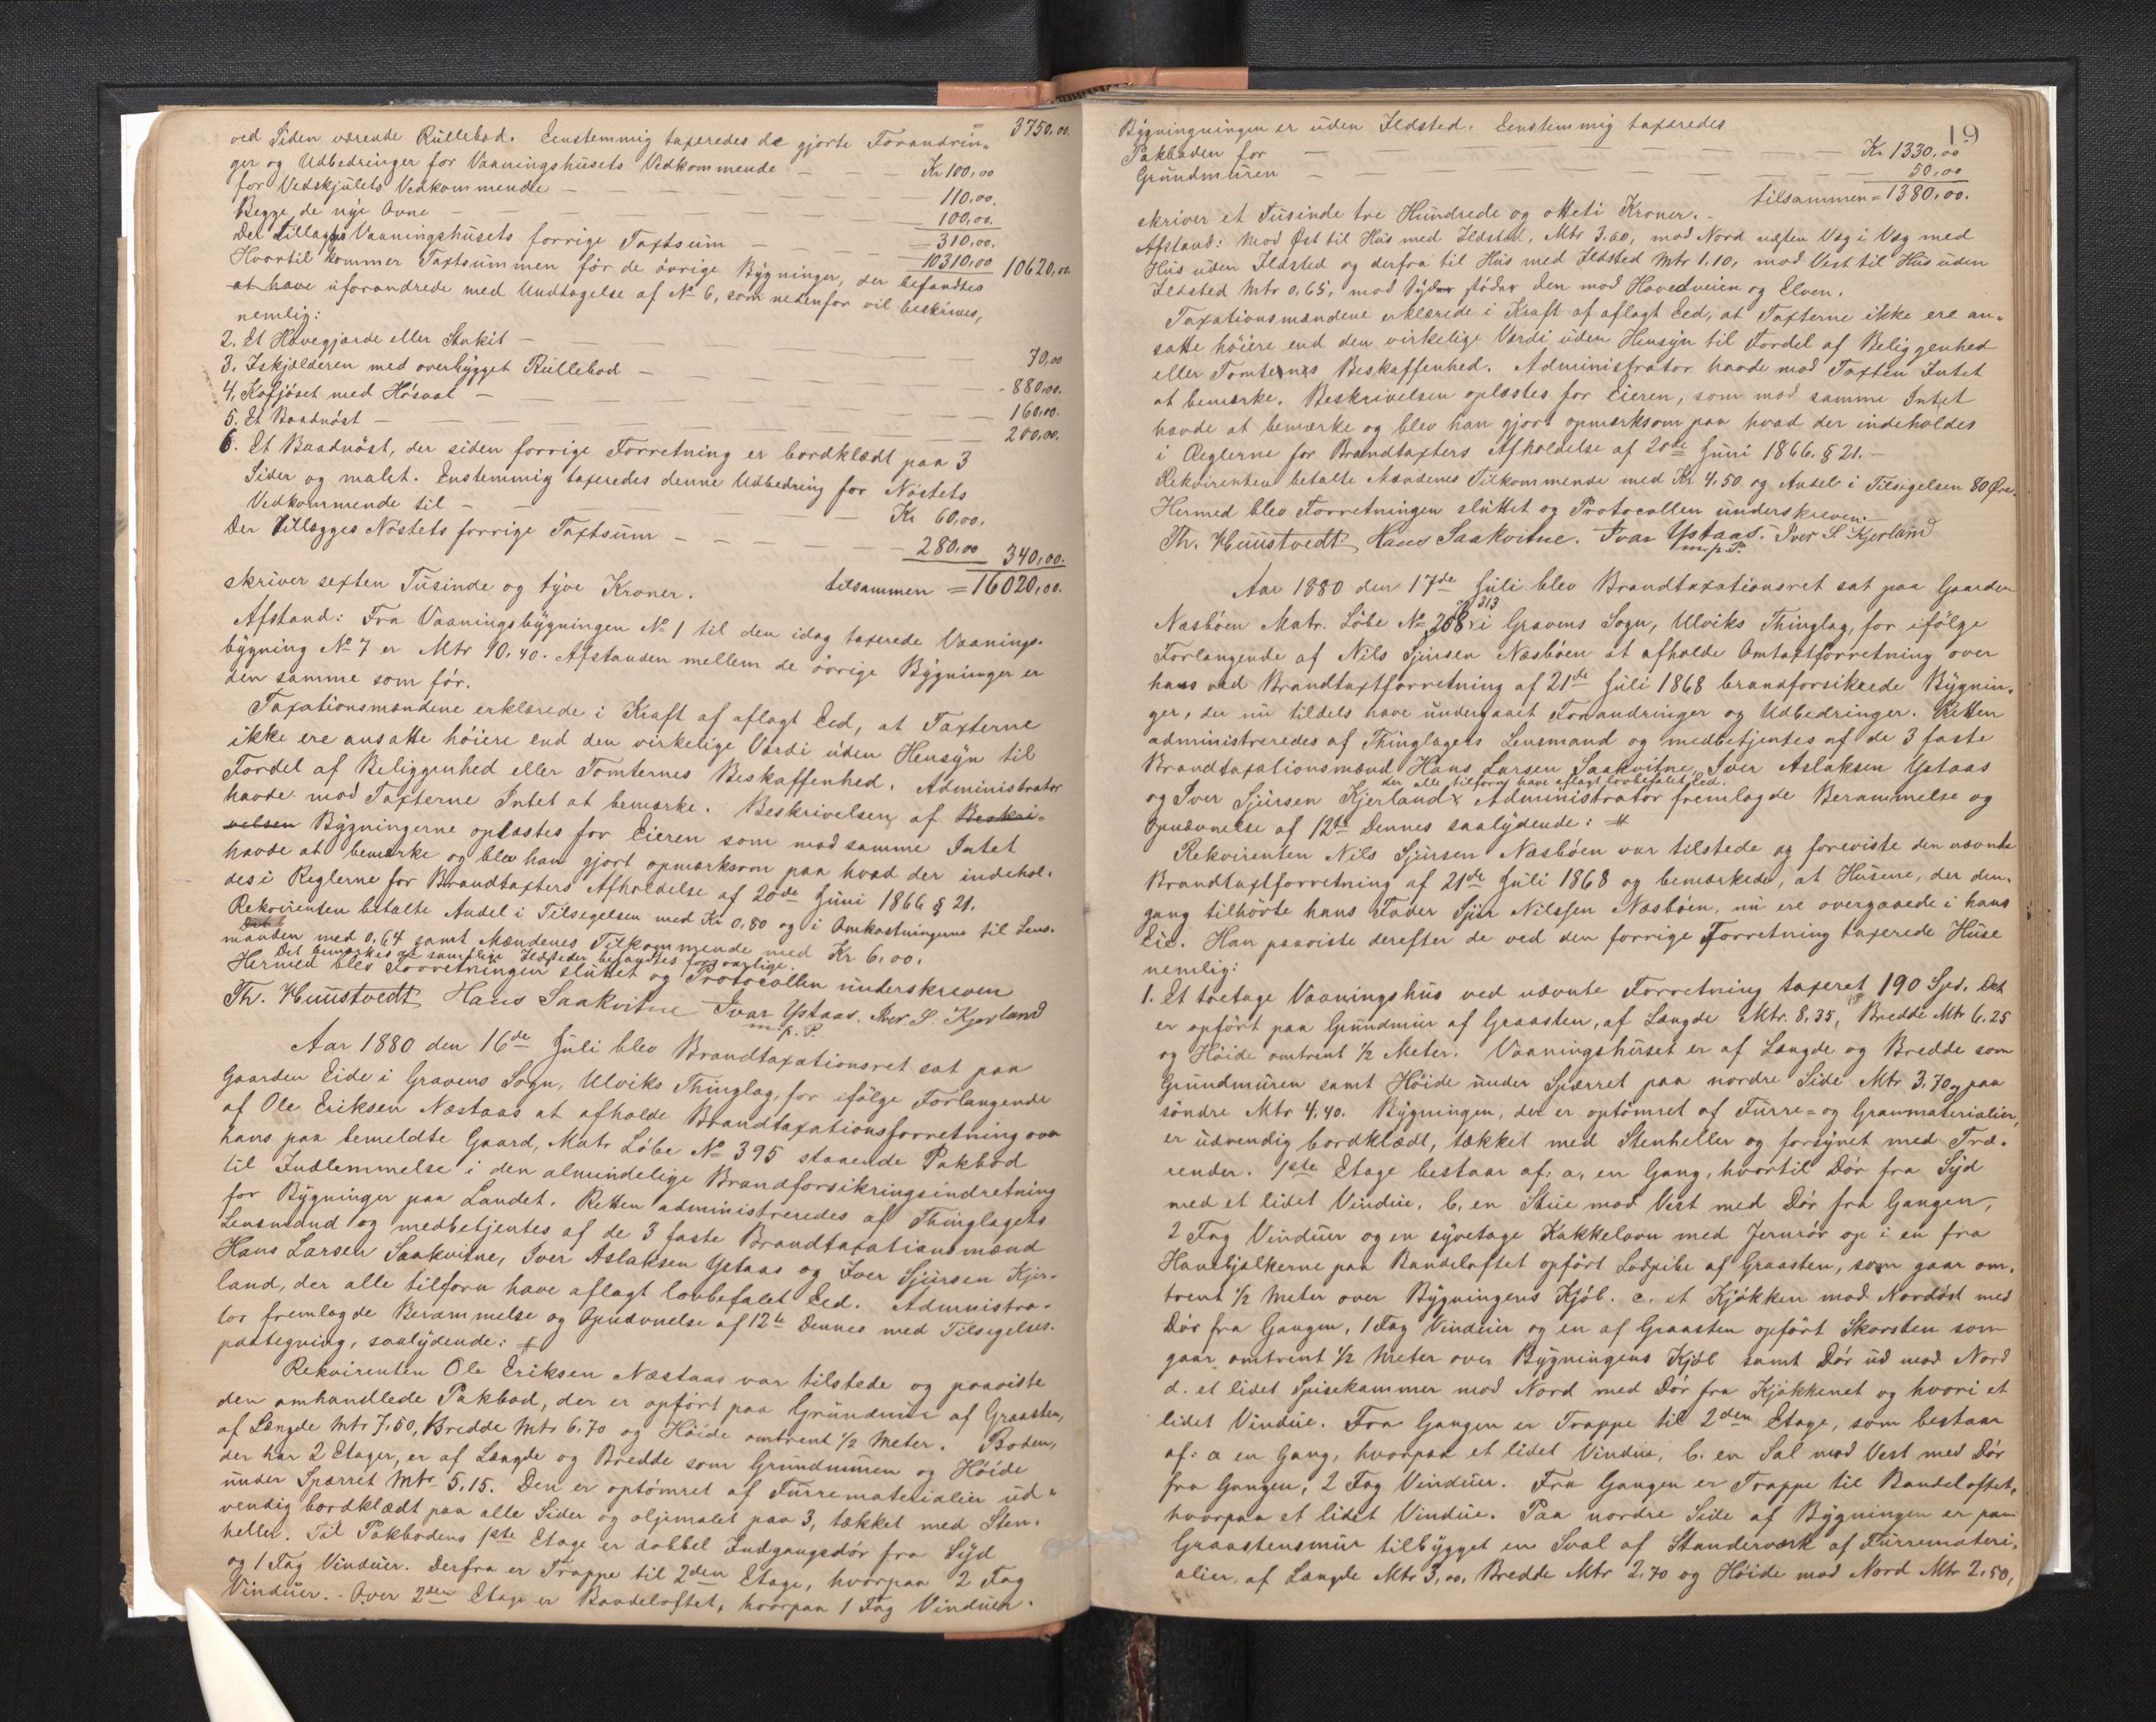 3750,00.
ved Siden værende Rullebod. Eenstemmig taxeredes de gjorte Forandrin-
ger og Udbedringer for Vaaningshusets Vedkommende — — Kr 100,00
for Vedskjulets Vedkommende — — — — 110,00.
Begge de nye Ovne — — — — 100,00.
= 310,00.
Der tillægges Vaaningshusets forrige Taxtsum — — 10310,00 10620,00
Hvortil kommer Taxtsummen for de övrige Bygninger, der befandtes
at have uforandrede med Undtagelse af No 6, som nedenfor vil beskrives,
nemlig:
2. Et Havegjærde eller Stakit — — — — 70,00
3. Iskjælderen med overbygget Rullebod — — — 880,00.
4. Kofjöset med Hösval — — — — 160,00.
5. Et Baadnöst — — — — 200,00.
6. Et Baadnöst, der siden forrige Forretning er bordklædt paa 3
Sider og malet. Enstemmig taxeredes denne Udbedring for Nöstets
Vedkommende til — — — Kr 60,00.
Der tillægges Nöstets forrige Taxtsum — — — 280,00 340,00.
tilsammen = 16020,00.
skriver sexten Tusinde og tyve Kroner.
Afstand: Fra Vaaningsbygningen No 1 til den idag taxerede Vaanings-
bygning No 7 er Mtr 10,40. Afstanden mellem de övrige Bygninger er
den samme som för.
Taxationsmændene erklærede i Kraft af aflagt Eed, at Taxterne
ikke ere ansatte höiere end den virkelige Værdi uden Hensyn til
Fordel af Beliggenhed eller Tomternes Beskaffenhed. Administrator
havde mod Taxterne Intet at bemærke. Beskrivelsen af Beskri-
velsen Bygningerne oplæstes for Eieren som mod samme Intet
havde at bemærke og blev han gjort opmærksom paa hvad der indehol-
des i Reglerne for Brandtaxters Afholdelse af 20de Juni 1866 § 21.
Rekvirenten betalte Andel i Tilsigelsen med Kr 0,80 og i Omkostningerne til Lens-
manden med 0,64 samt Mændenes Tilkommende med Kr 6,00.
Det bemærkes at samtlige Ildsteder befandtes forsvarlige.
Hermed blev Forretningen sluttet og Protocollen underskreven
Th. Huustvedt Hans Saakvitne Ivar Ystaas. Iver S. Kjerland
m.p.P.
Aar 1880 den 16de Juli blev Brandtaxationsret sat paa
Gaarden Eide i Gravens Sogn, Ulviks Thinglag, for ifölge Forlangende
af Ole Eriksen Næstaas at afholde Brandtaxationsforretning over
hans paa bemeldte Gaard, Matr Löbe No 395 staaende Pakbod
til Indlemmelse i den almindelige Brandforsikringsindretning
for Bygninger paa Landet. Retten administreredes af Thinglagets
Lensmand og medbetjentes af de 3 faste Brandtaxationsmænd
Hans Larsen Saakvitne, Iver Aslaksen Ystaas og Iver Sjursen Kjer-
land, der alle tilforn have aflagt lovbefalet Eed. Administra-
tor fremlagde Berammelse og Opnævnelse af 12te Dennes med Tilsigelses-
paategning, saalydende: #
Rekvirenten Ole Eriksen Næstaas var tilstede og paaviste
den omhandlede Pakbod, der er opfört paa Grundmur af Graasten,
af Længde Mtr 7,50, Bredde Mtr 6,70 og Höide omtrent 1/2 Meter. Boden,
der har 2 Etager, er af Længde og Bredde som Grundmuren og Höide
under Sperret Mtr 5,15. Den er optömret af Furrematerialier ud-
vendig bordklædt paa alle Sider og oljemalet paa 3, tækket med Sten-
heller. Til Pakbodens 1ste Etage er dobbel Indgangsdör fra Syd
og 1 Fag Vinduer. Derfra er Trappe til 2den Etage, hvorpaa 2 Fag
Vinduer. - Over 2den Etage er Bandeloftet, hvorpaa 1 Fag Vinduer.
19
Bygningningen er uden Ildsted. Eenstemmig taxeredes
Pakboden for — — — — Kr 1330,00
Grundmuren — — — — 50,00
tilsammen = 1380,00.
skriver et Tusinde tre Hundrede og otteti Kroner. -
Afstand: Mod Öst til Hus med Ildsted, Mtr 3,60, mod Nord næsten Væg i Væg med
Hus uden Ildsted og derfra til Hus med Ildsted Mtr 1,10, mod Vest til Hus uden
Ildsted Mtr 0,65, mod Syd stöder den mod Hovedveien og Elven.
Taxationsmændene erklærede i Kraft af aflagt Eed, at Taxterne ikke ere an-
satte höiere end den virkelige Værdi uden Hensyn til Fordel af Beliggenhed
eller Tomternes Beskaffenhed. Administrator havde mod Taxten Intet
at bemærke. Beskrivelsen oplæstes for Eieren, som mod samme Intet
havde at bemærke og blev han gjort opmærksom paa hvad der indeholdes
i Reglerne for Brandtaxters Afholdelse af 20de Juni 1866. § 21. -
Rekvirenten betalte Mændenes Tilkommende med Kr 4,50 og Andel i Tilsigelsen 80 Öre.
Hermed blev Forretningen sluttet og Protocollen underskreven.
Th. Huustvedt Hans Saakvitne. Ivar Ystaas. Iver S Kjerland
m.p.P.
Aar 1880 den 17de Juli blev Brandtaxationsret sat paa Gaarden
og 313
Næsböen Matr. Löbe No 268 i Gravens Sogn, Ulviks Thinglag, for ifölge
Forlangende af Nils Sjursen Næsböen at afholde Omtaxtforretning over
hans ved Brandtaxtforretning af 21de Juli 1868 brandforsikrede Bygnin-
ger, der nu tildels have undergaaet Forandringer og Udbedringer. Retten
administreredes af Thinglagets Lensmand og medbetjentes af de 3 faste
Brandtaxationsmænd Hans Larsen Saakvitne, Iver Aslaksen Ystaas
der alle tilforn have aflagt lovbefalet Eed.
og Iver Sjursen Kjerland. Administrator fremlagde Berammelse og
Opnævnelse af 12te Dennes saalydende: #
Rekvirenten Nils Sjursen Næsböen var tilstede og foreviste den nævnte
Brandtaxtforretning af 21de Juli 1868 og bemærkede, at Husene, der den-
gang tilhörte hans Fader Sjur Nilssen Næsböen, nu ere overgaaede i hans
Eie. Han paaviste derefter de ved den forrige Forretning taxerede Huse
nemlig:
1. Et toetage Vaaningshus ved nævnte Forretning taxeret 190 Spd. Det
er opfört paa Grundmur af Graasten, af Længde Mtr. 8,35, Bredde Mtr 6,25
og Höide omtrent 1/2 Meter. Vaaningshuset er af Længde og Bredde som
Grundmuren samt Höide under Sperret paa nordre Side Mtr 3,70 og paa
söndre Mtr 4,40. Bygningen, der er optömret af Furre- og Granmaterialier,
er udvendig bordklædt, tækket med Stenheller og forsynet med Træ-
render. 1ste Etage bestaar af: a, en Gang, hvortil Dör fra Syd
med et lidet Vindue. b, en Stue mod Vest med Dör fra Gangen,
2 Fag Vinduer og en syvetage Kakkelovn med Jernrör op i en fra
Hanebjælkerne paa Bandeloftet opfört Lodpibe af Graasten, som gaar om-
trent 1/2 Meter over Bygningens Kjöl. c. et Kjökken mod Nordöst med
Dör fra Gangen, 1 Fag Vinduer og en af Graasten opfört Skorsten som
gaar omtrent 1/2 Meter over Bygningens Kjöl samt Dör ud mod Nord
d. et lidet Spisekammer mod Nord med Dör fra Kjökkenet og hvori et
lidet Vindue. Fra Gangen er Trappe til 2den Etage, som bestaar
af: a en Gang, hvorpaa et lidet Vindue, b. en Sal mod Vest med Dör
fra Gangen, 2 Fag Vinduer. Fra Gangen er Trappe til Bandeloftet,
hvorpaa et lidet Vindue. Paa nordre Side af Bygningen er paa
Graastensmur tilbygget en Sval af Standerværk af Furremateri-
alier, af Længde Mtr 3,00, Bredde Mtr 2,70 og Höide mod Nord Mtr 2,50,